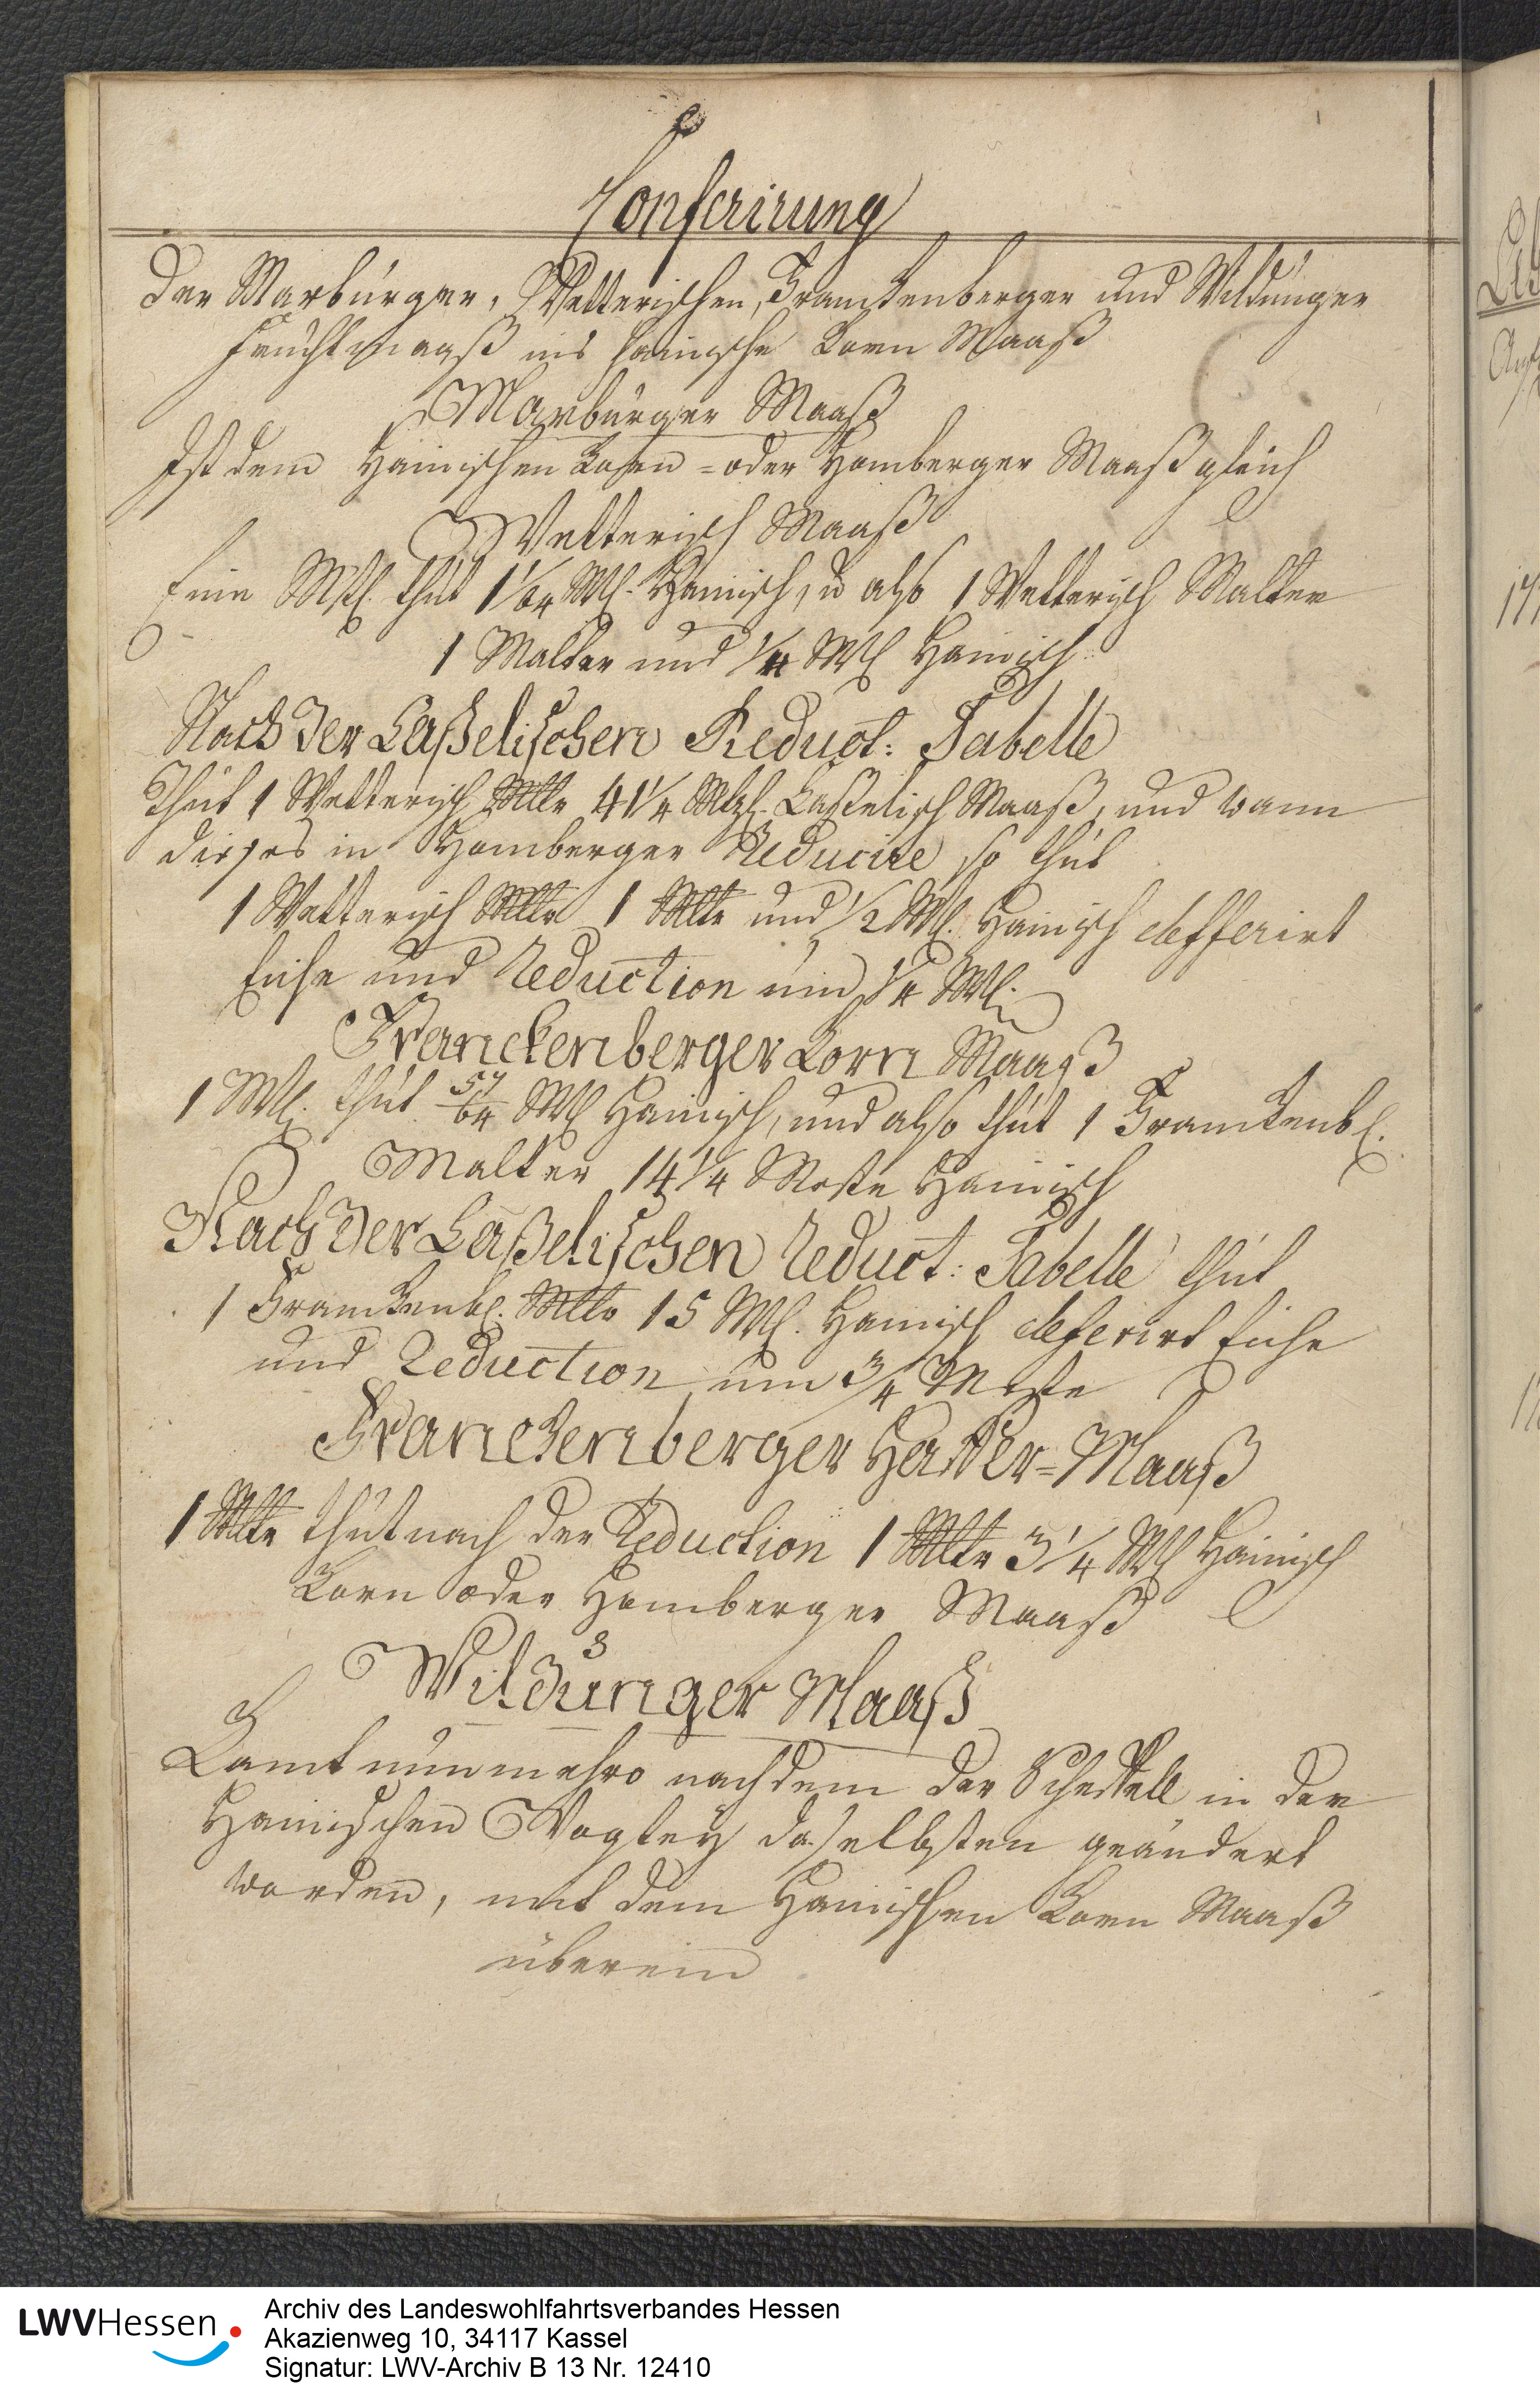 Conferirung
Der Marburger, Wetterischen, Franckenberger und Wildunger
Fruchtmaaß ins hainische Korn Maaß
Marburger Maaß
Ist dem Hainischen Korn = oder Homberger Maaß gleich
Wetterisch Maaß
Eine Mst. thut 1 1/64 Mst. Hainisch, u also 1 Wetterisch Malter
1 Malter und 1/4 Mst Hainisch
Nach der Caßelischen Reduct: Tabelle
Thut 1 Wetterisch Mltr 41 1/4 Mtz. Casselisch Maaß, und wann
dieses in Homberger Reducire so thut
1 Wetterisch Mltr 1 Mltr und 1/2 Mst. Hainisch defferirt
Eiche und Reduction um 1/4 Mst.
Franckenberger Korn Maaß
1 Mst. thut 57/64 Mst Hainisch, und also thut 1 Franckenb.
Malter 14 1/4 Meste Hainisch
Nach der Caßelischen Reduct: Tabelle thut
1 Franckenb. Mltr 15 Mst. Hainisch deferirt Eiche
und Reduction um 3/4 Meste
Franckenberger Haffer = Maaß
1 Mltr thut nach der Reduction 1 Mltr 3 1/4 Mst Hainisch
Korn oder Homberger Maaß
Wildunger Maaß
Komt nunmehro nachdem der Scheffell in der
Hainischen Vogtey daselbsten geändert
worden, mit dem Hainischen Korn Maaß
überein
LWVHessen
Archiv des Landeswohlfahrtsverbandes Hessen
Akazienweg 10, 34117 Kassel
Signatur: LWV-Archiv B 13 Nr. 12410